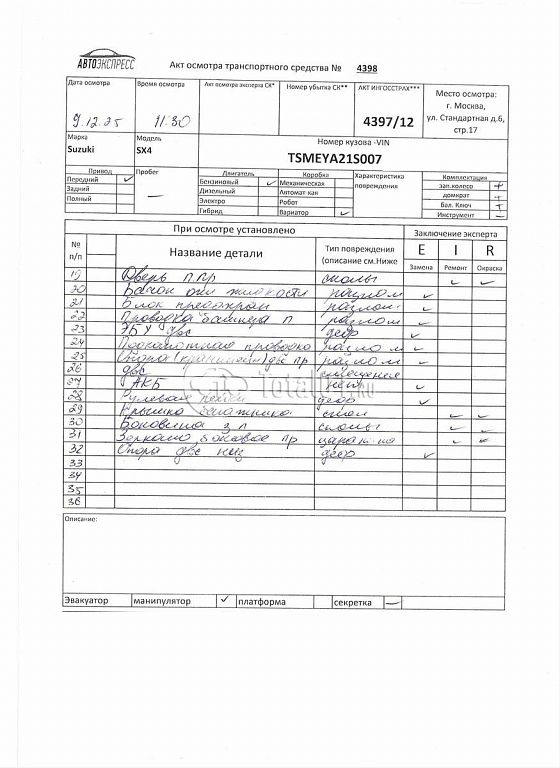 АВТОЭКСПРЕСС
Акт осмотра транспортного средства № 4398
Дата осмотра Время осмотра Акт осмотра эксперта СК* Номер убытка СК** АКТ ИНГОССТРАХ*** Место осмотра:
г. Москва,
9.12.25 11:30 4397/12 ул. Стандартная д.6,
стр.17
Марка Модель Номер кузова -VIN
Suzuki SX4 TSMEYA21S007
Привод Пробег Двигатель Коробка Характеристика повреждения Комплектация
Передний ✓ — Бензиновый ✓ Механическая зап.колесо +
Задний Дизельный Автомат кая домкрат +
Полный Электро Робот Бал. Ключ +
Гибрид Вариатор ✓ Инструмент —
При осмотре установлено Заключение эксперта
№ п/п Название детали Тип повреждения (описание см.Ниже E I R
Замена Ремонт Окраска
19 Дверь п.пр сколы ✓ ✓
20 Бачок омы жидкости разлом ✓
21 Блок предохран разлом ✓
22 Проводка п разлом ✓
23 ЭБУ двс деф ✓
24 Подкапотная проводка разлом ✓
25 Опора (кронштейн) двс пр разлом ✓
26 двс смещение
27 АКБ нет ✓
28 Рулевая деф ✓
29 Крышка багажника скол ✓ ✓
30 Боковина з л сколы ✓ ✓
31 Зеркало боковое пр царапина ✓ ✓
32 Опора двс низ деф ✓
33
34
35
36
Total
Описание:
Эвакуатор манипулятор ✓ платформа секретка —